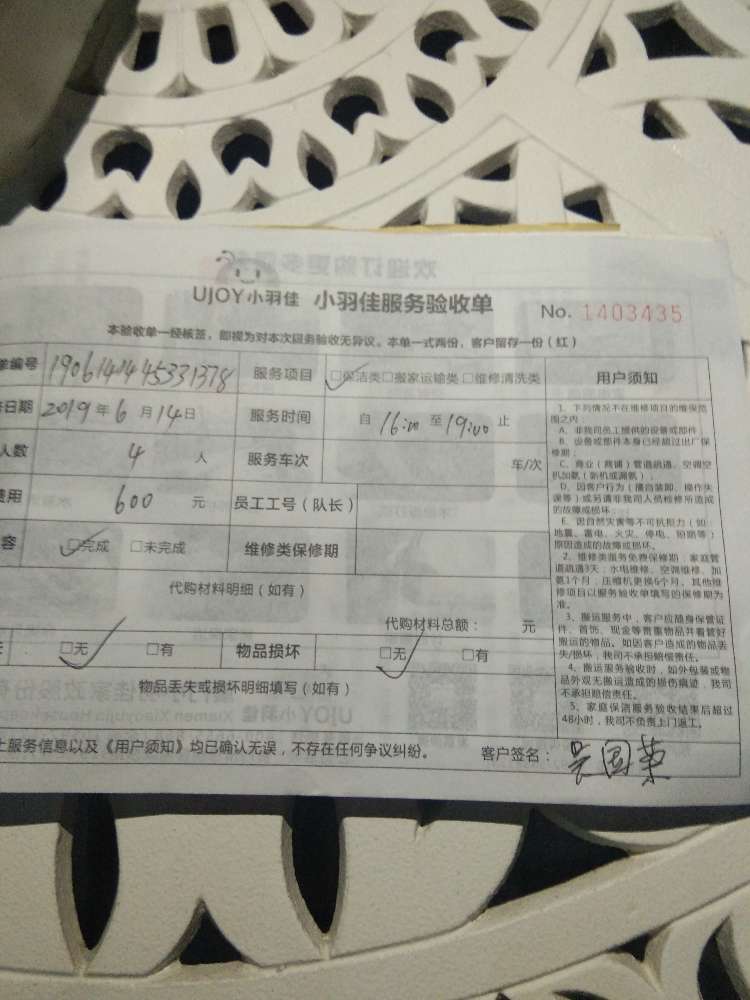 UJOY小羽佳 小羽佳服务验收单 No. 1403435
本验收单一经核签，即视为对本次服务验收无异议。本单一式两份，客户留存一份（红）
单编号 1906141445331378 服务项目 □保洁类□搬家运输类□维修清洗类 用户须知
日期 2019年6月14日 服务时间 自16:00至19:00止
人数 4人 服务车次 车/次
费用 600元 员工工号（队长）
容 □完成 □未完成 维修类保修期
代购材料明细（如有）
代购材料总额： 元
□无 □有 物品损坏 □无 □有
物品丢失或损坏明细填写（如有）
上服务信息以及《用户须知》均已确认无误，不存在任何争议纠纷。 客户签名：吴国荣
1、下列情况不在维修项目的维保范
围之内：
A、非我司员工提供的设备或部件
B、设备或部件本身已经超过出厂保
修期；
C、商业（商铺）管道疏通、空调空
机加氨（新机或漏氨）；
D、因客户行为（擅自装卸、操作失
误等）或另请非我司人员检修所造成
的故障或损坏；
E、因自然灾害等不可抗拒力（如：
地震、雷电、火灾、停电、纷期等）
原因造成的故障或损坏。
2、维修类服务免费保修期：家庭管
道疏通3天；水电维修、空调维修、加
氨1个月；压缩机更换6个月。其他维
修项目以服务验收单填写的保修期为
准。
3、搬运服务中，客户应随身保管证
件、首饰、现金等贵重物品并看管好
搬运的物品。如因客户造成的物品丢
失/损坏，我司不承担赔偿责任。
4、搬运服务验收时，如外包装或物
品外观无搬运造成的损伤痕迹，我司
不承担赔偿责任。
5、家庭保洁服务验收结果后超过
48小时，我司不负责上门返工。